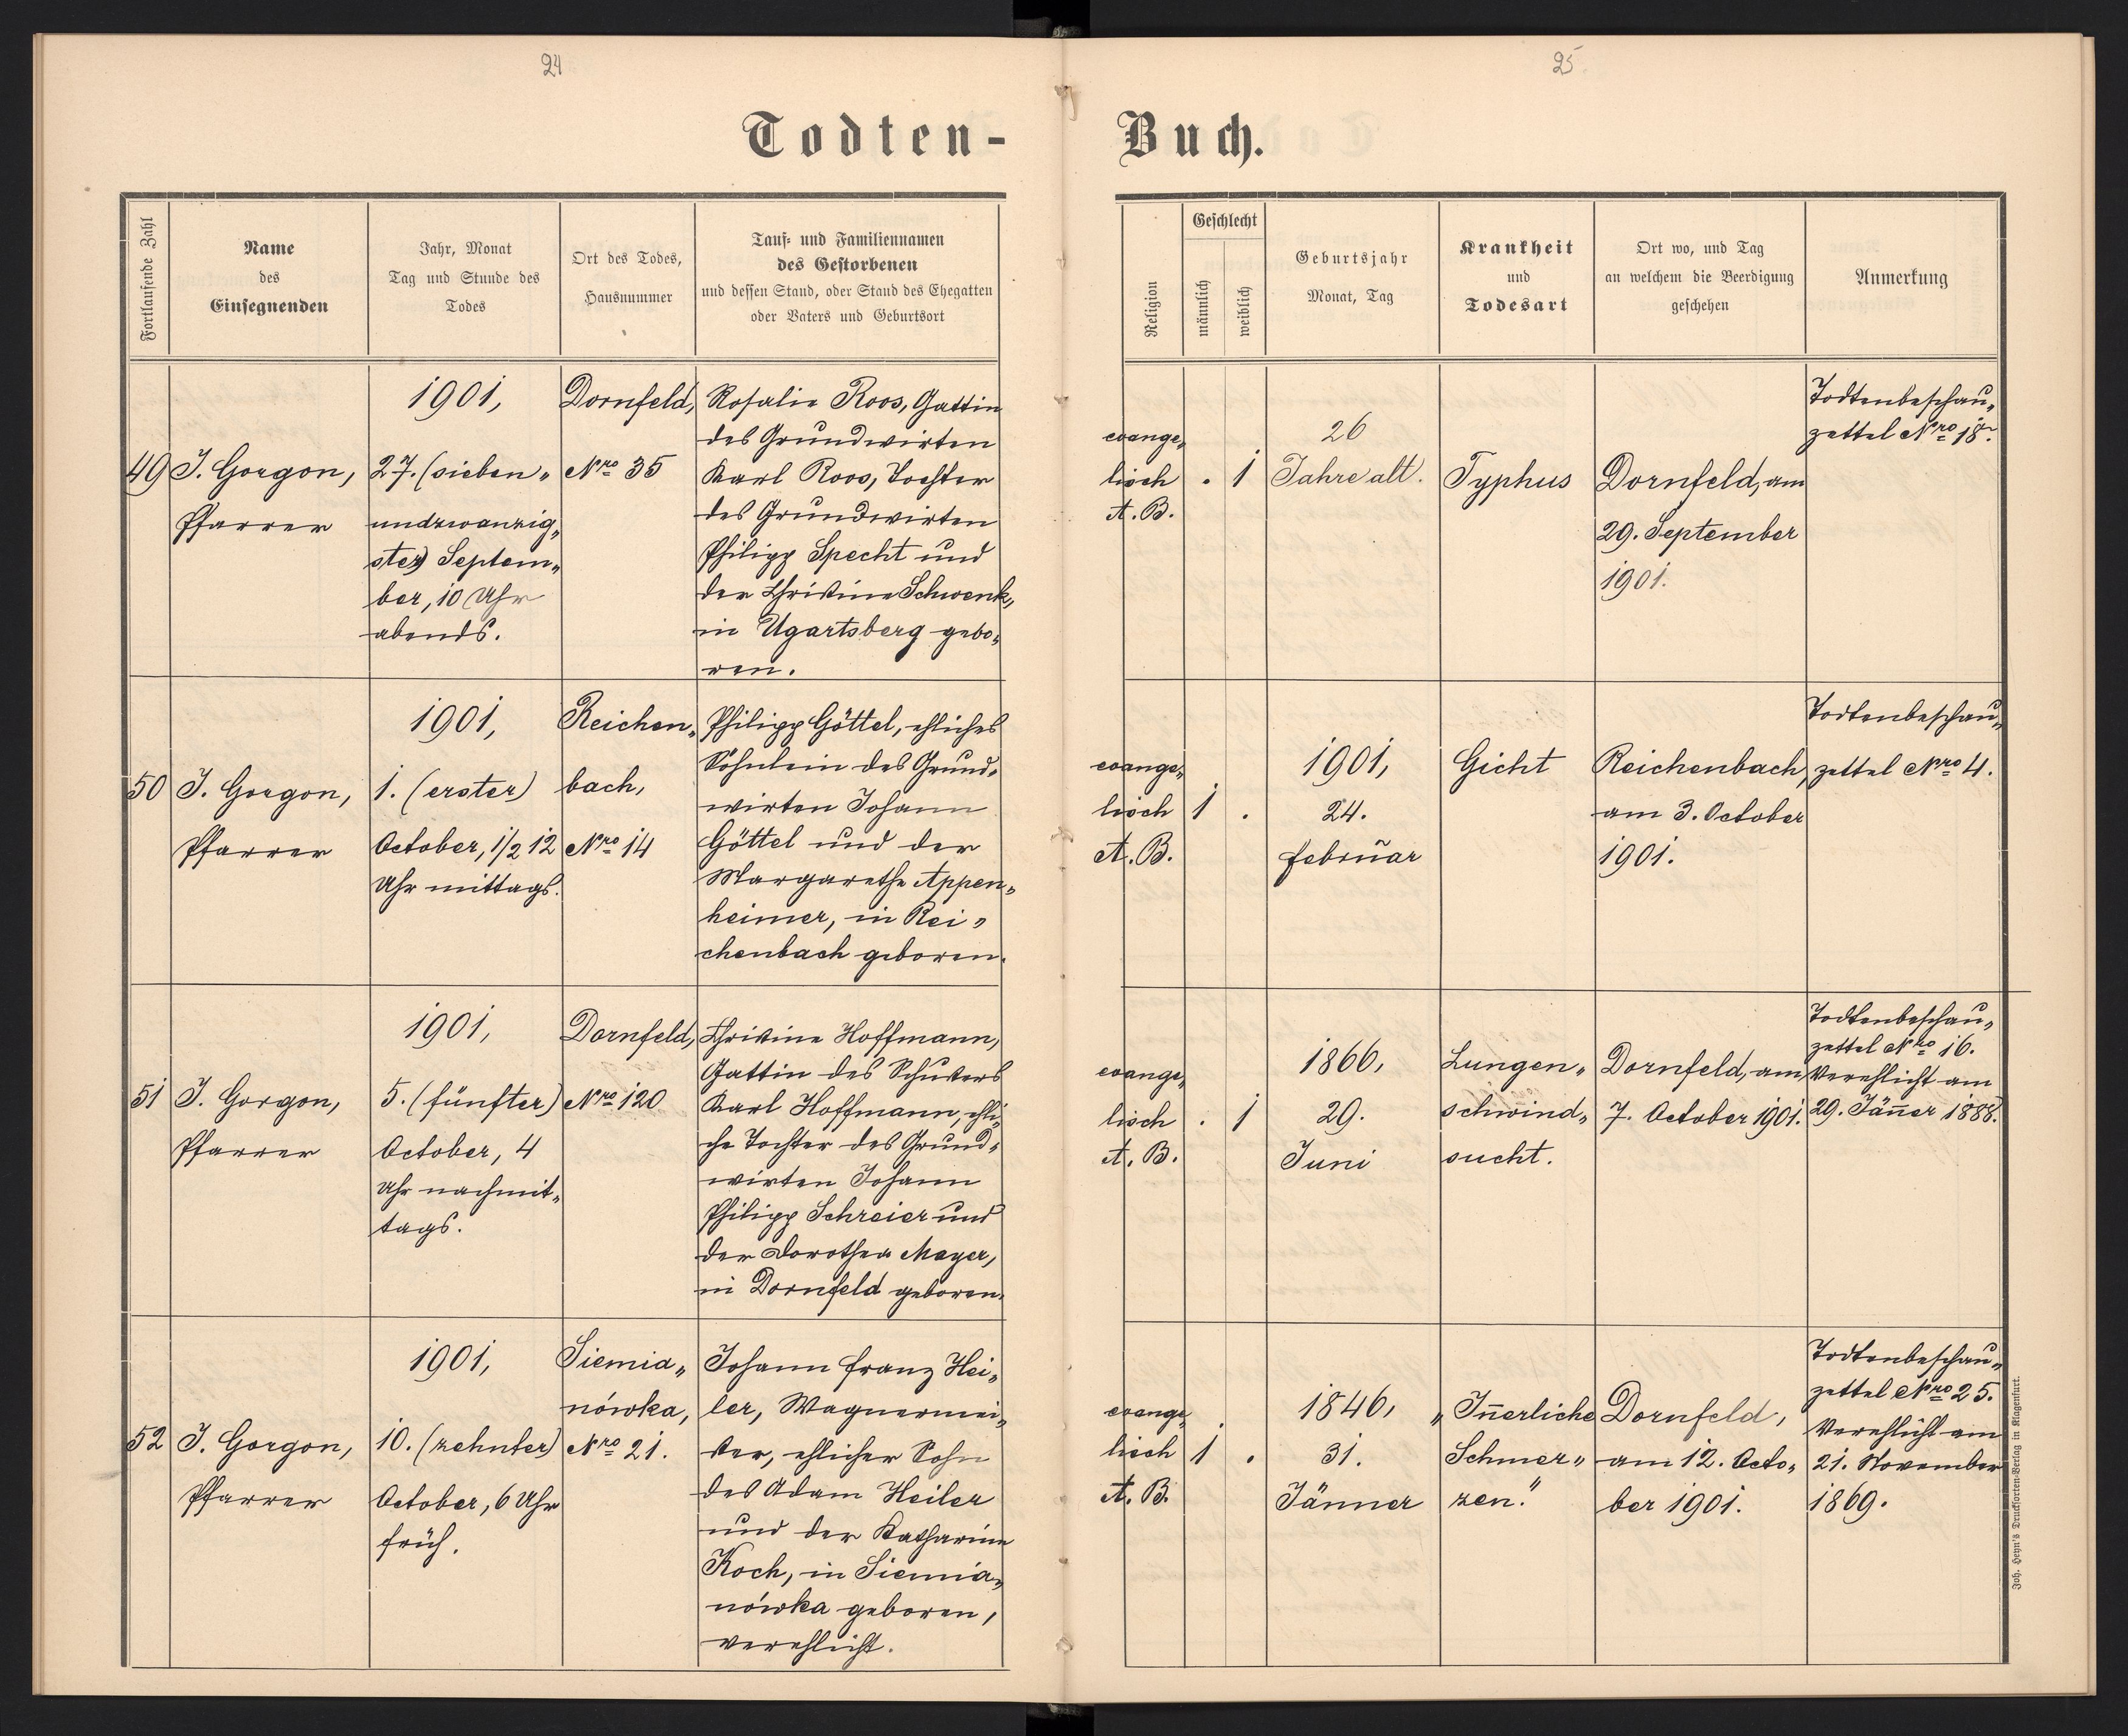 24
Todten-
Fortlaufende Zahl
Name
des
Einsegnenden
Jahr, Monat
Tag und Stunde des
Todes
Ort des Todes,
Hausnummer
Tauf- und Familiennamen
des Gestorbenen
und dessen Stand, oder Stand des Ehegatten
oder Vaters und Geburtsort
49
J. Gorgon,
Pfarrer
1901,
27. (sieben„
undzwanzig„
ster) Septem„
ber, 10 Uhr
abends.
Dornfeld,
Nro 35
Rosalie Roos, Gattin
des Grundwirten
Karl Roos, Tochter
des Grundwirten
Philipp Specht und
der Christine Schwenk,
in Ugartsberg gebo„
ren.
50
J. Gorgon,
Pfarrer
1901,
1. (erster)
October, 1/2 12
Uhr mittags.
Reichen„
bach,
Nro 14
Philipp Göttel, ehliches
Söhnlein des Grund„
wirten Johann
Göttel und der
Margarethe Appen„
heimer, in Rei„
chenbach geboren.
51
J. Gorgon,
Pfarrer
1901,
5. (fünfter)
October, 4
Uhr nachmit„
tags.
Dornfeld,
Nro 120
Christine Hoffmann,
Gattin des Schusters
Karl Hoffmann, ehli„
che Tochter des Grund„
wirten Johann
Philipp Schreier und
der Dorothea Mayer,
in Dornfeld geboren.
52
J. Gorgon,
Pfarrer
1901,
10. (zehnter)
October, 6 Uhr
früh.
Siemia„
nówka,
Nro 21.
Johann Franz Hei„
ler, Wagnermei„
ster, ehlicher Sohn
des Adam Heiler
und der Katharina
Koch, in Siemia„
nówka geboren,
verehlicht.
25
Buch.
Religion
Geschlecht
männlich
weiblich
Geburtsjahr
Monat, Tag
Krankheit
und
Todesart
Ort wo, und Tag
an welchem die Beerdigung
geschehen
Anmerkung
evange„
lisch
A. B.
. 1
26
Jahre alt.
Typhus
Dornfeld, am
29. September
1901.
Todtenbeschau„
zettel Nro 18.
evange„
lisch
A. B.
1 .
1901,
24.
Februar
Gicht
Reichenbach,
am 3. October
1901.
Todtenbeschau„
zettel Nro 4.
evange„
lisch
A. B.
. 1
1866,
29.
Juni
Lungen„
schwind„
sucht.
Dornfeld, am
7. October 1901.
Todtenbeschau„
zettel Nro 16.
Verehlicht am
29. Jänner 1888.
evange„
lisch
A. B.
1 .
1846,
31.
Jänner
„Innerliche
Schmer„
zen."
Dornfeld,
am 12. Octo„
ber 1901.
Todtenbeschau„
zettel Nro 25.
Verehlicht am
21. November
1869.
Joh. Heyn's Drucksorten-Verlag in Klagenfurt.